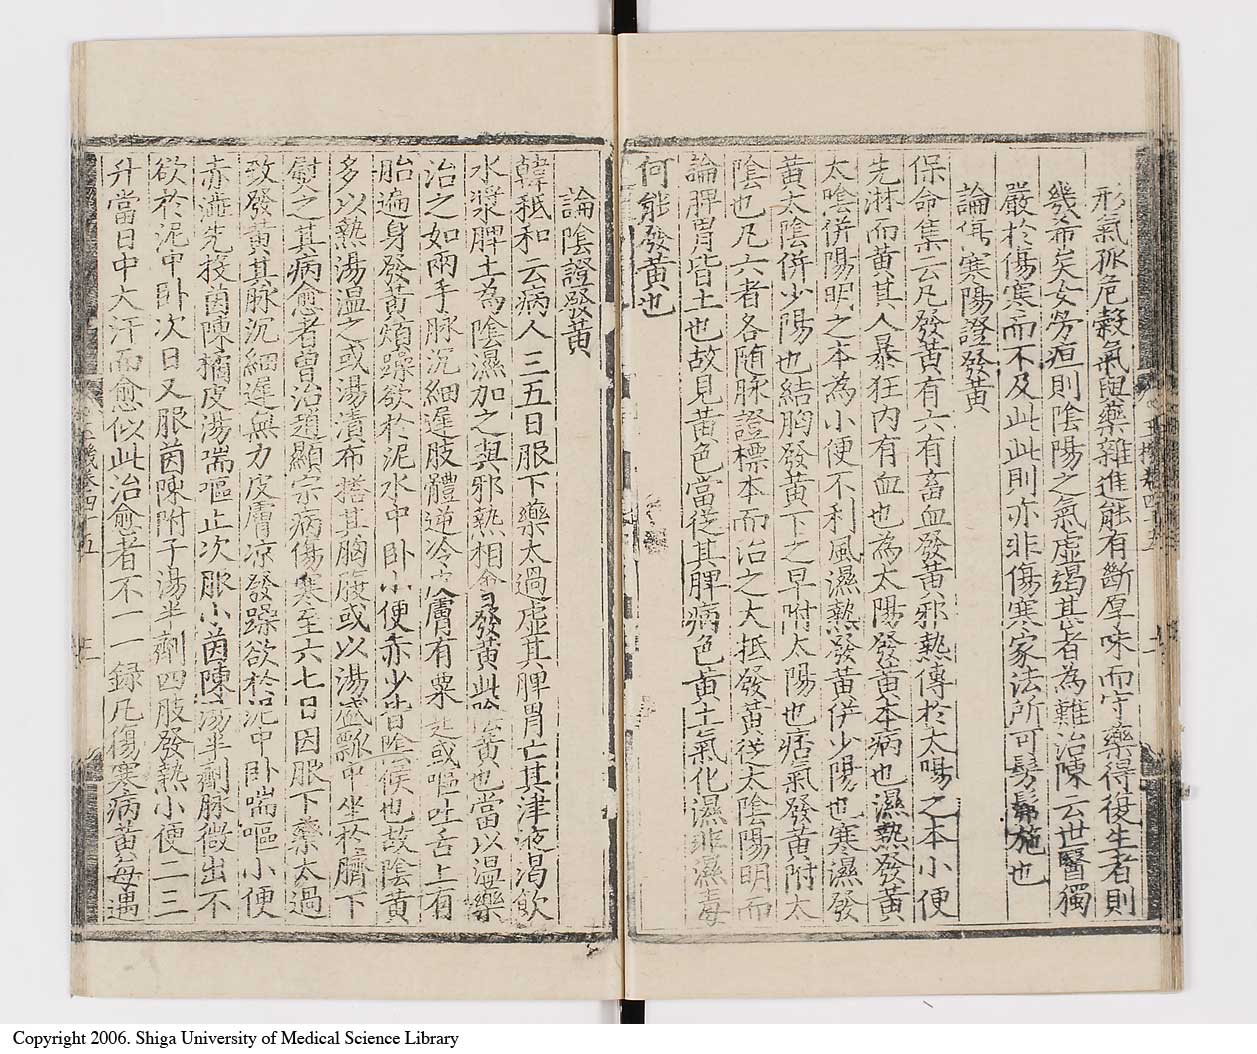 形氣孤危穀氣與藥雜進能有斷厚味而守藥得復生者則
幾希矣女勞疸則陰陽之氣虛竭甚者為難治陳云世醫獨
嚴於傷寒而不及此此則亦非傷寒家法所可髣髴施也
論傷寒陽證發黃
保命集云凡發黃有六有畜血發黃邪熱傳於太陽之本小便
先淋而黃其人暴狂內有血也為太陽發黃本病也濕熱發黃
太陰併陽明之本為小便不利風濕熱發黃併少陽也寒濕發
黃太陰併少陽也結胸發黃下之早附太陽也痞氣發黃附太
陰也凡六者各隨脉證標本而治之大抵發黃從太陰陽明而
論脾胃皆土也故見黃色當從其脾病色黃土氣化濕非濕毒
何能發黃也
論陰證發黃
韓秪和云病人三五日服下藥太過虛其脾胃亡其津液渴飲
水漿脾土為陰濕加之與邪熱相會發黃此陰黃也當以溫藥
治之如兩手脉沉細遲肢體逆冷皮膚有粟起或嘔吐舌上有
胎遍身發黃煩躁欲於泥水中卧小便赤少皆陰候也故陰黃
多以熱湯溫之或湯漬布搭其胸腹或以湯盛瓢中坐於臍下
熨之其病愈者曾治趙顯宗病傷寒至六七日因服下藥太過
致發黃其脉沉細遲無力皮膚凉發躁欲於泥中卧喘嘔小便
赤澁先投茵陳橘皮湯喘嘔止次服小茵陳湯半劑脉微出不
欲於泥中卧次日又服茵陳附子湯半劑四肢發熱小便二三
升當日中大汗而愈似此治愈者不一一録凡傷寒病黃每遇